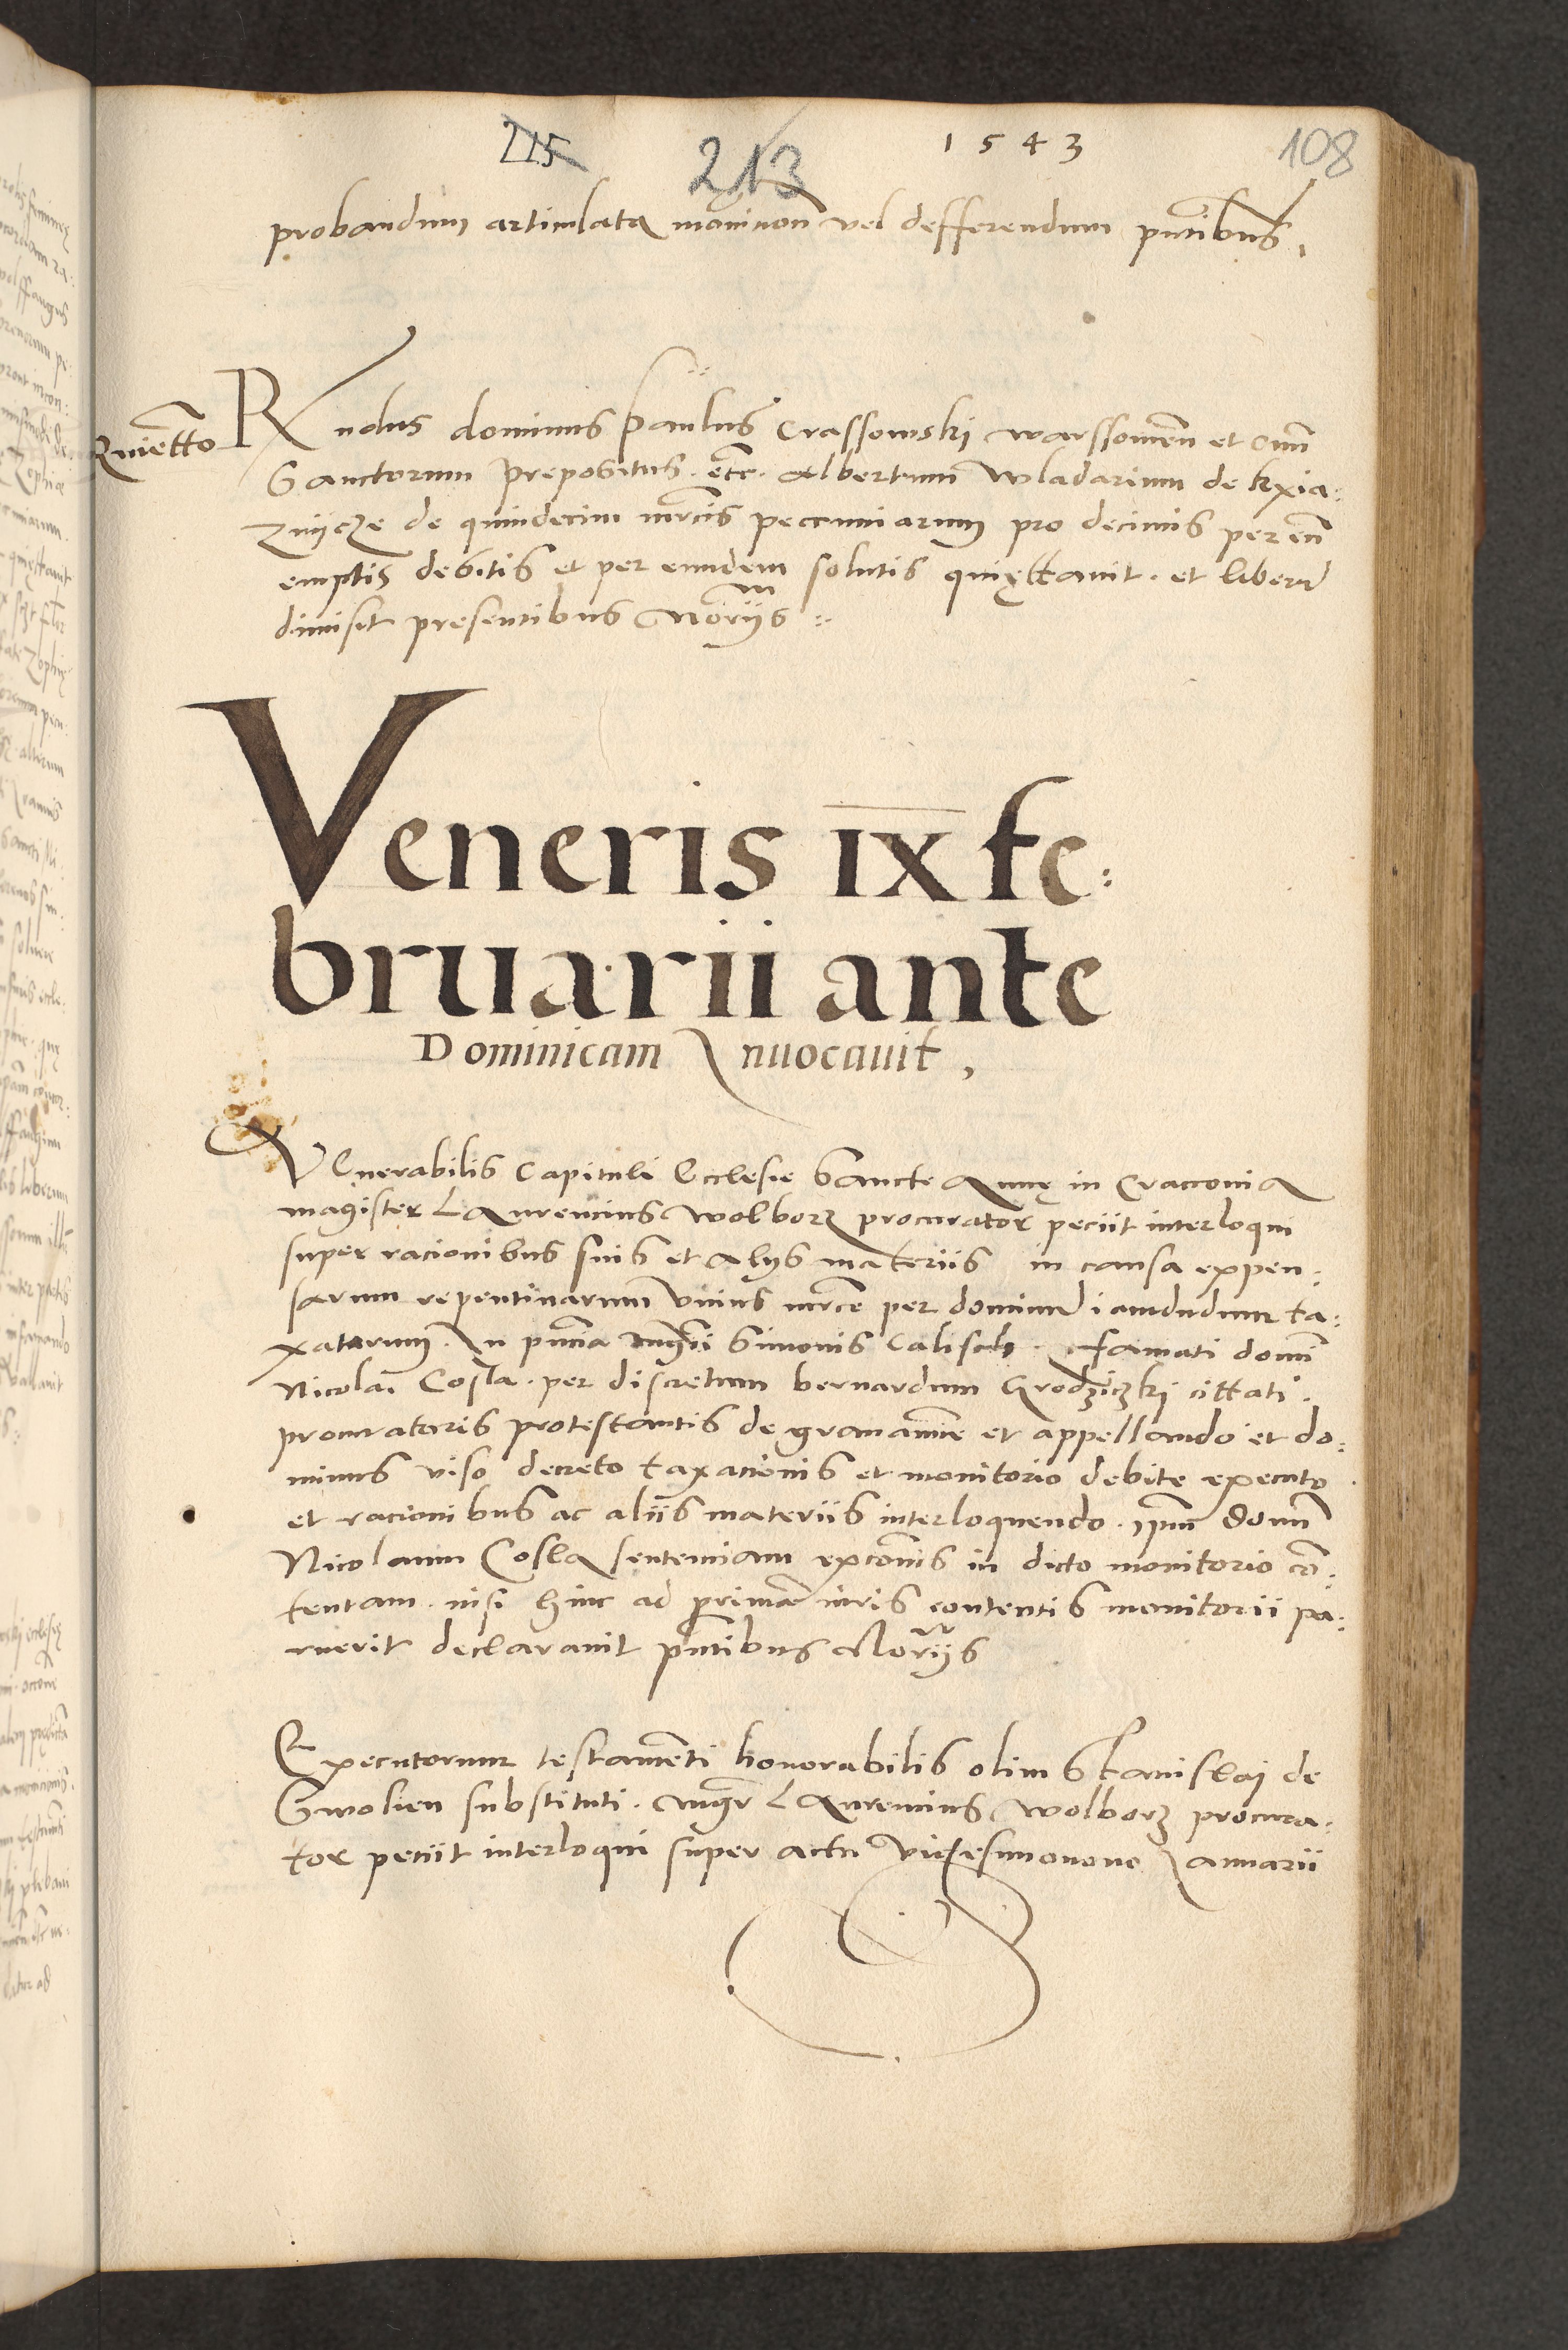 215 213 1543 108
probandum articulata monicion vel defferendum pntibus
Quietto
Rndus dominus Paulus Crassowski warssowien et omn
Sanctorum prepositus. etc. Albertum Wladarium de kxia:
znycze de quindecim mrcis pecuniarum pro decimis per eun
emptis debitis et per eundem solutis quięttavit. et liberu
dimisit presentibus Noriis
Veneris ix fe:
bruarii ante
Dominicam Invocavit,
VEnerabilis Capituli Ecclesie Sancte Annę in Cracovia
magister Laurencius Wolborz procurator peciit interloqui
super racionibus suis et alys materiis in causa expen:
sarum repentinarum unius mrce per dominum iamdudum ta:
xatarum. In pntia mgri Simonis Calisch. famati domi
Nicolai Cosla. per discretum bernardum Grodziczki cittati.
procuratoris protestantis de gravamine et appellando et do:
minus viso decreto taxacionis et monitorio debite executo
et racionibus ac aliis materiis interloquendo. ipm domn
Nicolaum Cosla sentenciam excomis in dicto monitorio con:
tentam. nisi hinc ad primam iuris contentis monitorii pa:
ruerit declaravit pntibus Noriis
Executorum testamenti honorabilis olim Stanislai de
Gwolien substituti. mgr Laurencius Wolborz procura:
tor peciit interloqui super actu vicesimonono Januarii